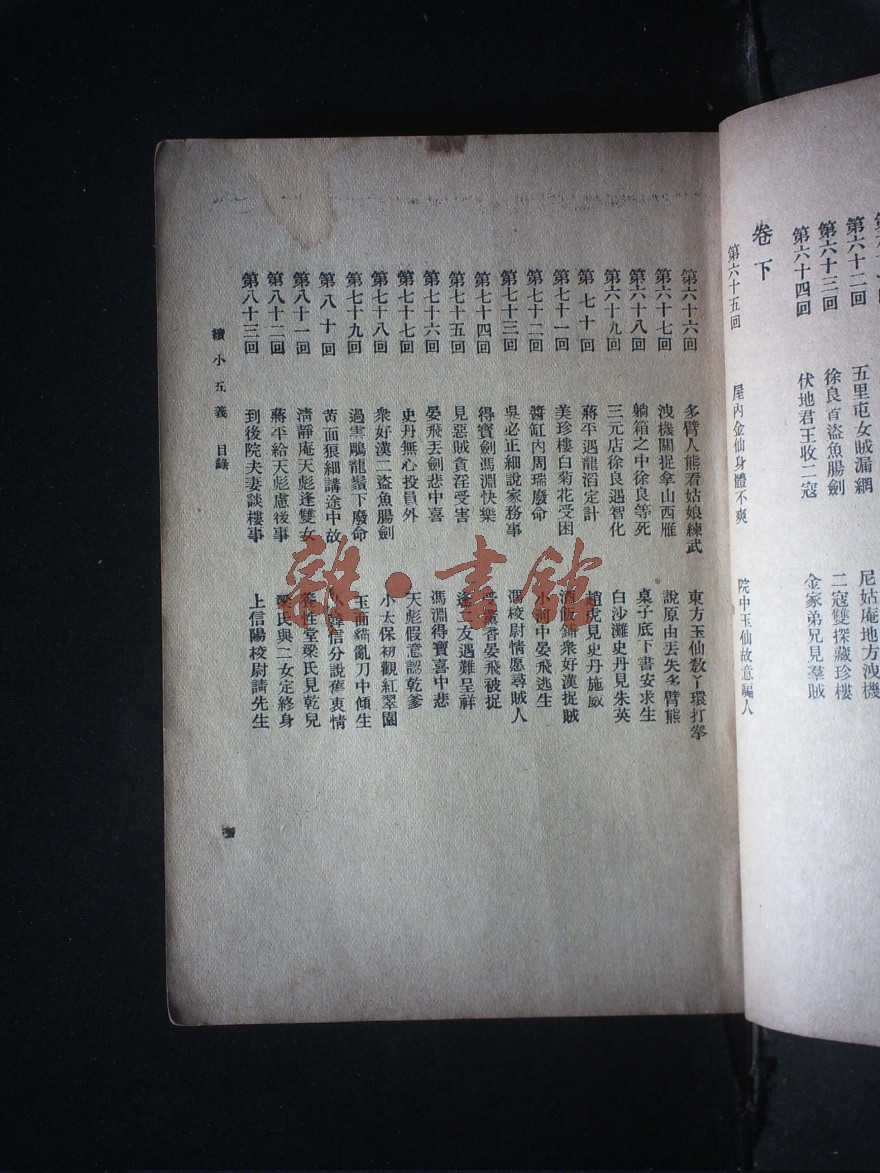 第六十二回 五里屯女賊漏網 尼姑庵地方洩機
第六十三回 徐良首盜魚腸劍 二寇雙探藏珍樓
第六十四回 伏地君王收二寇 金家弟兄見羣賊
卷下
第六十五回 屋內金仙身體不爽 院中玉仙故意騙人
第六十六回 多臂人熊看姑娘練武 東方玉仙敎丫環打拳
第六十七回 洩機關捉拿山西雁 說原由丟失多臂熊
第六十八回 躺箱之中徐良等死 桌子底下書安求生
第六十九回 三元店徐良遇智化 白沙灘史丹見朱英
第七十回 蔣平遇龍滔定計 趙虎見史丹施威
第七十一回 美珍樓白菊花受困 酒飯鋪衆好漢捉賊
第七十二回 醬缸內周瑞廢命 小河中晏飛逃生
第七十三回 吳必正細說家務事 馮校尉情愿尋賊人
第七十四回 得寶劍馮淵快樂 薰香晏飛被捉
第七十五回 見惡賊貪淫受害 逢二友遇難呈祥
第七十六回 晏飛丟劍悲中喜 馮淵得寶喜中悲
第七十七回 史丹無心投員外 天彪假意認乾爹
第七十八回 衆好漢二盜魚腸劍 小太保初觀紅翠園
第七十九回 過雲鵰龍鬚下廢命 玉面貓亂刀中傾生
第八十回 黃面狼細講途中故 韓信分說舊衷情
第八十一回 淸靜庵天彪逢雙女 養性堂梁氏見乾兒
第八十二回 蔣平給天彪慮後事 梁氏與二女定終身
第八十三回 到後院夫妻談樓事 上信陽校尉請先生
續小五義 目錄
雜·書館